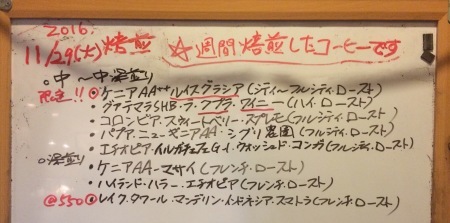 2016.
11/29(火)焙煎 ☆週間焙煎したコーヒーです
○中〜中深煎り
限定!!◎ケニアAA++ルイスグラシア(シティーフルシティ.ロースト)
・グアテマラSHB・ラ・ププラ・ワイニー(ハイ.ロースト)
・コロンビア.スウィートベリー.スプレモ(フルシティ.ロースト)
・パプア.ニューギニアAA.シグリ農園(フルシティ.ロースト)
・エチオピア.イルガチェフェG1.ウォッシュド.コンガ(フルシティ.ロースト)
○深煎り
・ケニアAA-マサイ(フレンチ.ロースト)
・ハイランド.ハラー.エチオピア(フレンチ.ロースト)
@550◎レイク.タワール.マンデリン.インドネシア.スマトラ(フレンチ.ロースト)